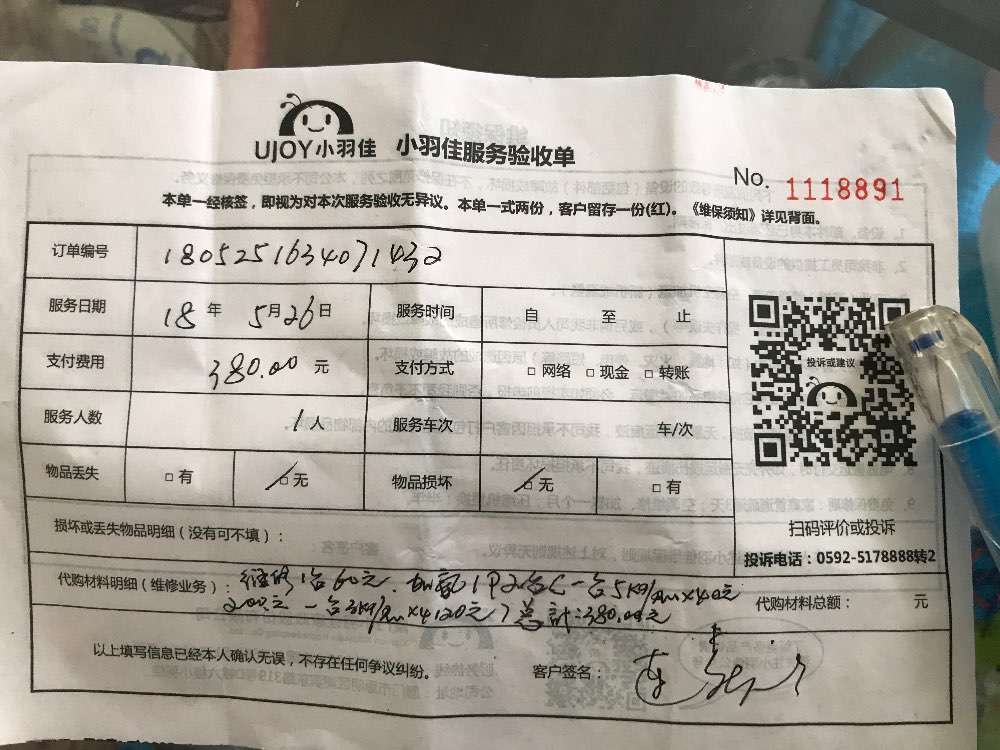 UJOY小羽佳 小羽佳服务验收单
No. 1118891
本单一经核签，即视为对本次服务验收无异议。本单一式两份，客户留存一份(红)。《维保须知》详见背面。
订单编号 1805251634071432
服务日期 18年 5月26日 服务时间 自 至 止
支付费用 380.00 元 支付方式 □网络 □现金 □转账
投诉或建议
服务人数 1人 服务车次 车/次
物品丢失 □有 □无 物品损坏 □无 □有
损坏或丢失物品明细（没有可不填）：
扫码评价或投诉
投诉电话：0592-5178888转2
代购材料明细（维修业务）： 维修1台60元. 加氟1P2台(一台5kg/ x40元
200元 一台3kg/ x4 120元) 总计:380.00元
代购材料总额： 元
以上填写信息已经本人确认无误，不存在任何争议纠纷。 客户签名：